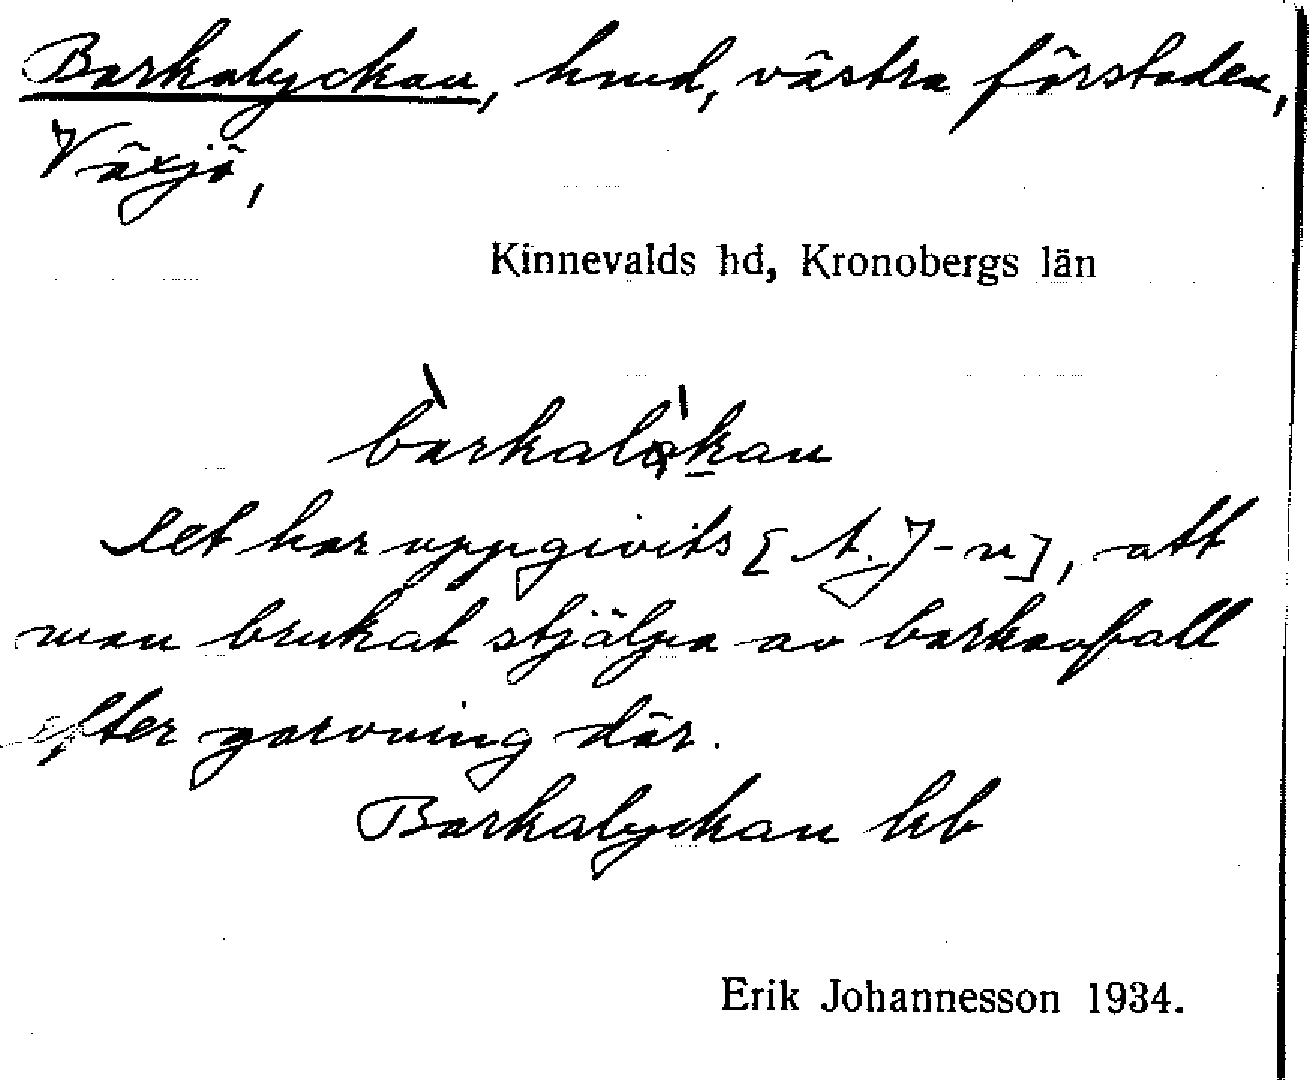 Barkalyckan, hmd, västra förstaden,
Växjö,
Kinnevalds hd, Kronobergs län
bàrkalǫ́kan
Det har uppgivits [t. J-n], att
man brukat stjälpa av barkavfall
efter garvning där.
Barkalyckan kb
Erik Johannesson 1934.